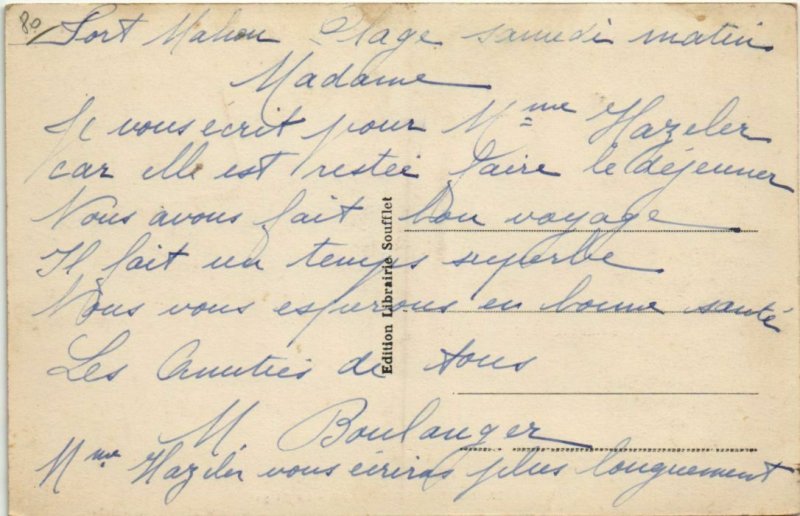 80
Fort Mahon Plage samedi matin
Madame
Je vous ecrit pour Mme Hazeler
car elle est restée faire le déjeuner
Nous avons fait bon voyage
Il fait un temps superbe
Nous vous esperons en bonne santé
Les Amitiés de tous
M Boulanger
Mme Hazeler vous écriras plus longuement
Edition Librairie Soufflet